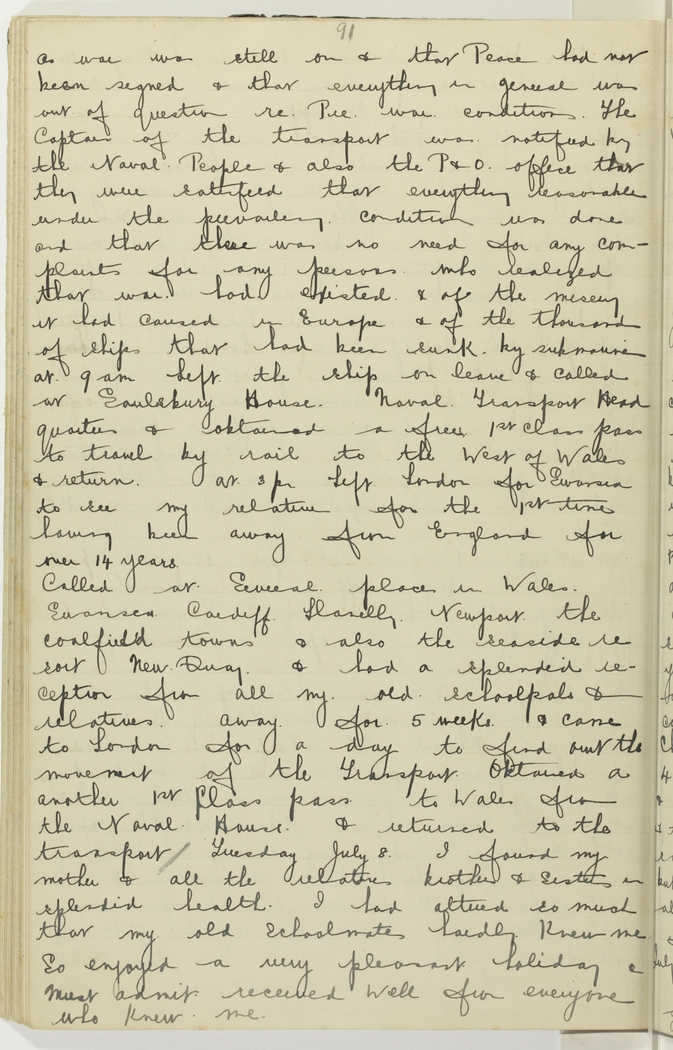 91
as war was still on & that Peace had not
been signed & that everything in general was
out of question re. Pre. war conditions. The
Captain of the transport was notified by
the Naval People & also the P & O. office that
they were satisfied that everything reasonable
under the prevailing condition was done
and that there was no need for any com-
plaints for any persons who realized
that war had existed & of the misery
it had caused in Europe & of the thousand
of ships that had been sunk by submarine
at 9 am left the ship on leave & called
at House. Naval Transport Head
quarters & obtained a free 1st Class pass
to travel by rail to the West of Wales
& return. at 3 pm left London for Swansea
to see my relatives for the 1st time
having been away from England for
over 14 years
Called at Several places in Wales.
Swansea Cardiff Llanelly. Newport the
coalfield towns & also the seaside re
sort New Quay. & had a splended re-
ception from all my old schoolpals &
relatives. away for 5 weeks. & came
to London for a day to find out the
movement of the Transport. Obtained a
another 1st Class pass to Wales from
the Naval House & returned to the
transport / Tuesday July 8. I found my
mother & all the relatives brother & Sisters in
splendid health. I had altered so much
that my old Schoolmates hardly Knew me
So enjoyed a very pleasant holiday &
must admit received well from everyone
who Knew me.